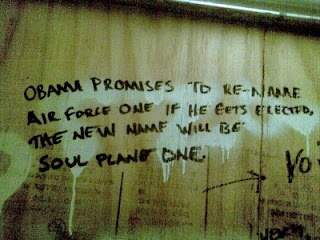 OBAMA PROMISES TO RE-NAME
AIR FORCE ONE IF HE GETS ELECTED,
THE NEW NAME WILL BE
SOUL PLANE ONE.